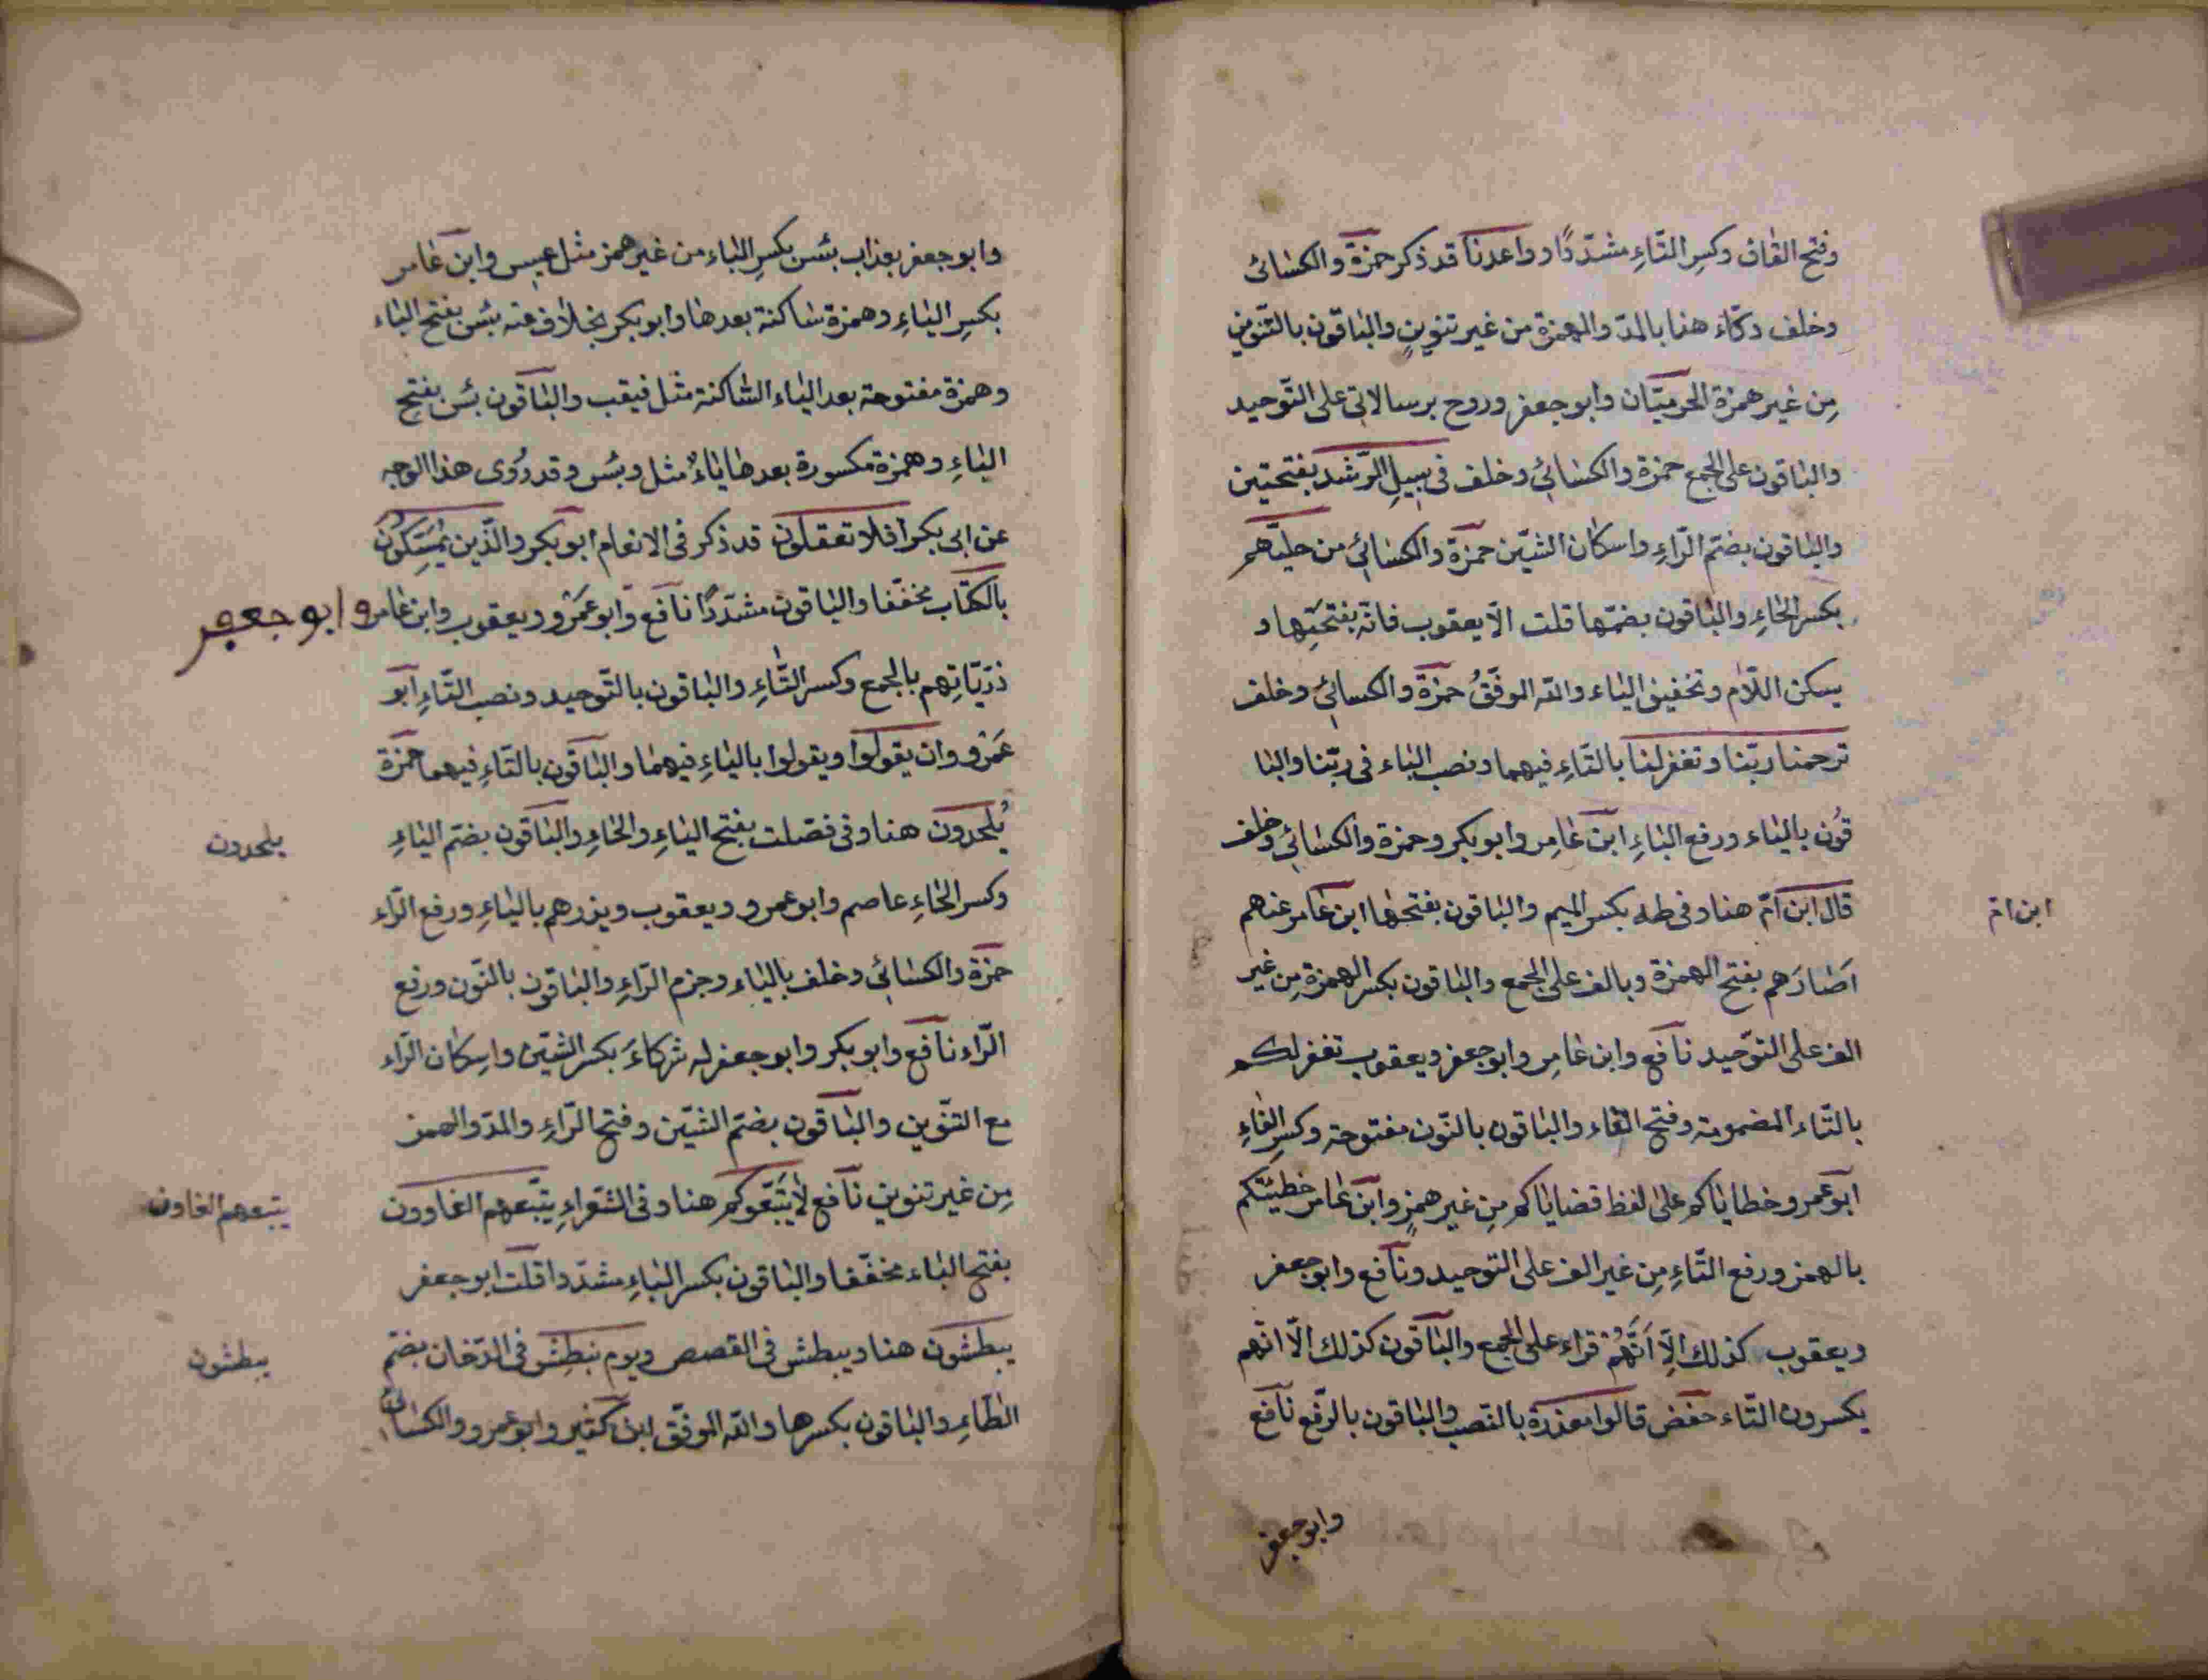 وفتح القاف وكسرِ التّاءِ مشدّدًا وواعدنا قد ذكر حمزة والكسائى
وخلف دكّاء هنا بالمدّ والهمزة من غير تنوينٍ والباقون بالتّنوين
مِن غير همزة الحرميّان وابو جعفر وروح برسالاتى على التّوحيد
والباقون على الجمع حمزة والكسائىُ وخلف فى سبيلِ الرّشد بفتحتين
والباقون بضمّ الرّاءِ واسكان الشّين حمزة والكسائىُ من حليّهم
بكسر الحاءِ والباقون بضمّها قلت الّا يعقوب فانّه بفتحِها و
يسكن اللّام وتخفيف الياء والله الموفّقُ حمزة والكسائىُ وخلف
ترحمنا ربّنا وتغفر لنا بالتّاءِ فيهما ونصب الباء فى ربّنا والبا
قُون بالياء ورفع الباءِ ابن عامِر وابو بكر وحمزة والكسائىُ وخلف
قال ابن امّ هنا وفى طه بكسر الميم والباقون بفتحها ابن عامر عنهم
ابن امّ
اَصَارَهم بفتح الهمزة وبالف على الجمع والباقون بكسر الهمزة مِن غير
الف على التوّحيد نافع وابن عامِر وابو جعفر ويعقوب تغفر لكم
بالتّاء المضمومة وفتح الفاء والباقون بالنّون مفتوحة وكسرِ الفاءِ
ابو عمرو خطاياكم على لفظ قضاياكم مِن غير همزٍ وابن عامر خطيئتكم
بالهمز ورفع التّاءِ مِن غير الف على التوحيد ونافع وابو جعفر
ويعقوب كذلك الّا اَنّهُم قراء على الجمع والباقون كذلك الّا انّهم
يكسرون التّاء حفص قالوا معذرة بالنّصب والباقون بالرّفع نافع
وابو جعفر
وابو جعفر بعذاب بئس بكسرِ الباء من غير همز مثل عيس وابن عامر
بكسرِ الباءِ وهمزة ساكنة بعدها وابو بكر بخلاف عنه بئس بفتح الباء
وهمزة مفتوحة بعد الياء السّاكنة مثل فيقب والباقون بئس بفتح
الباءِ وهمزة مكسورة بعدها ياءٌ مثل وبئس وقد رُوى هذا الوجه
عن ابى بكر افلا تعقلون قد ذكر فى الانعام ابو بكر والّذين يُمْسِكُونَ
بالكتاب مخفّفا والباقون مشدّدًا نافع وابو عَمْرو ويعقوب وابن عامر وابو جعفر
ذرّيّاتِهم بالجمع وكسر التّاءِ والباقون بالتّوحيد ونصب التّاءِ ابو
عَمْرو وان يقولوا ويقولوا بالياءِ فيهما والباقون بالتّاءِ فيهما حمزة
يُلحدون هنا وفى فصّلت بفتح الياءِ والحاءِ والباقون بضمّ الياءِ
يلحدون
وكسر الحاءِ عاصم وابو عمرو ويعقوب ويذرهم بالياءِ ورفع الرّاء
حمزة والكسائىُ وخلف بالياء وجزم الرّاءِ والباقون بالنّون ورفع
الرّاء نافع وابو بكر وابو جعفر له شركاءَ بكسر الشّين واِسكان الرّاء
مع التنّوين والباقون بضمّ الشّين وفتح الرّاءِ والمدّ والهمز
مِن غير تنوين نافع لا يَتْبَعُوكم هنا وفى الشّعراءِ يتبعهم الغاوون
يتبعهم الغاون
بفتح الباء مخفّفا والباقون بكسر الباءِ مشدّدا قلت ابو جعفر
يبطشون هنا ويبطش فى القصص ويوم نبطِش فى الدّخان بضمّ
يبطشون
الطّاءِ والباقون بكسرها والله الموفّق ابن كثير وابو عمرو والكسائىُ